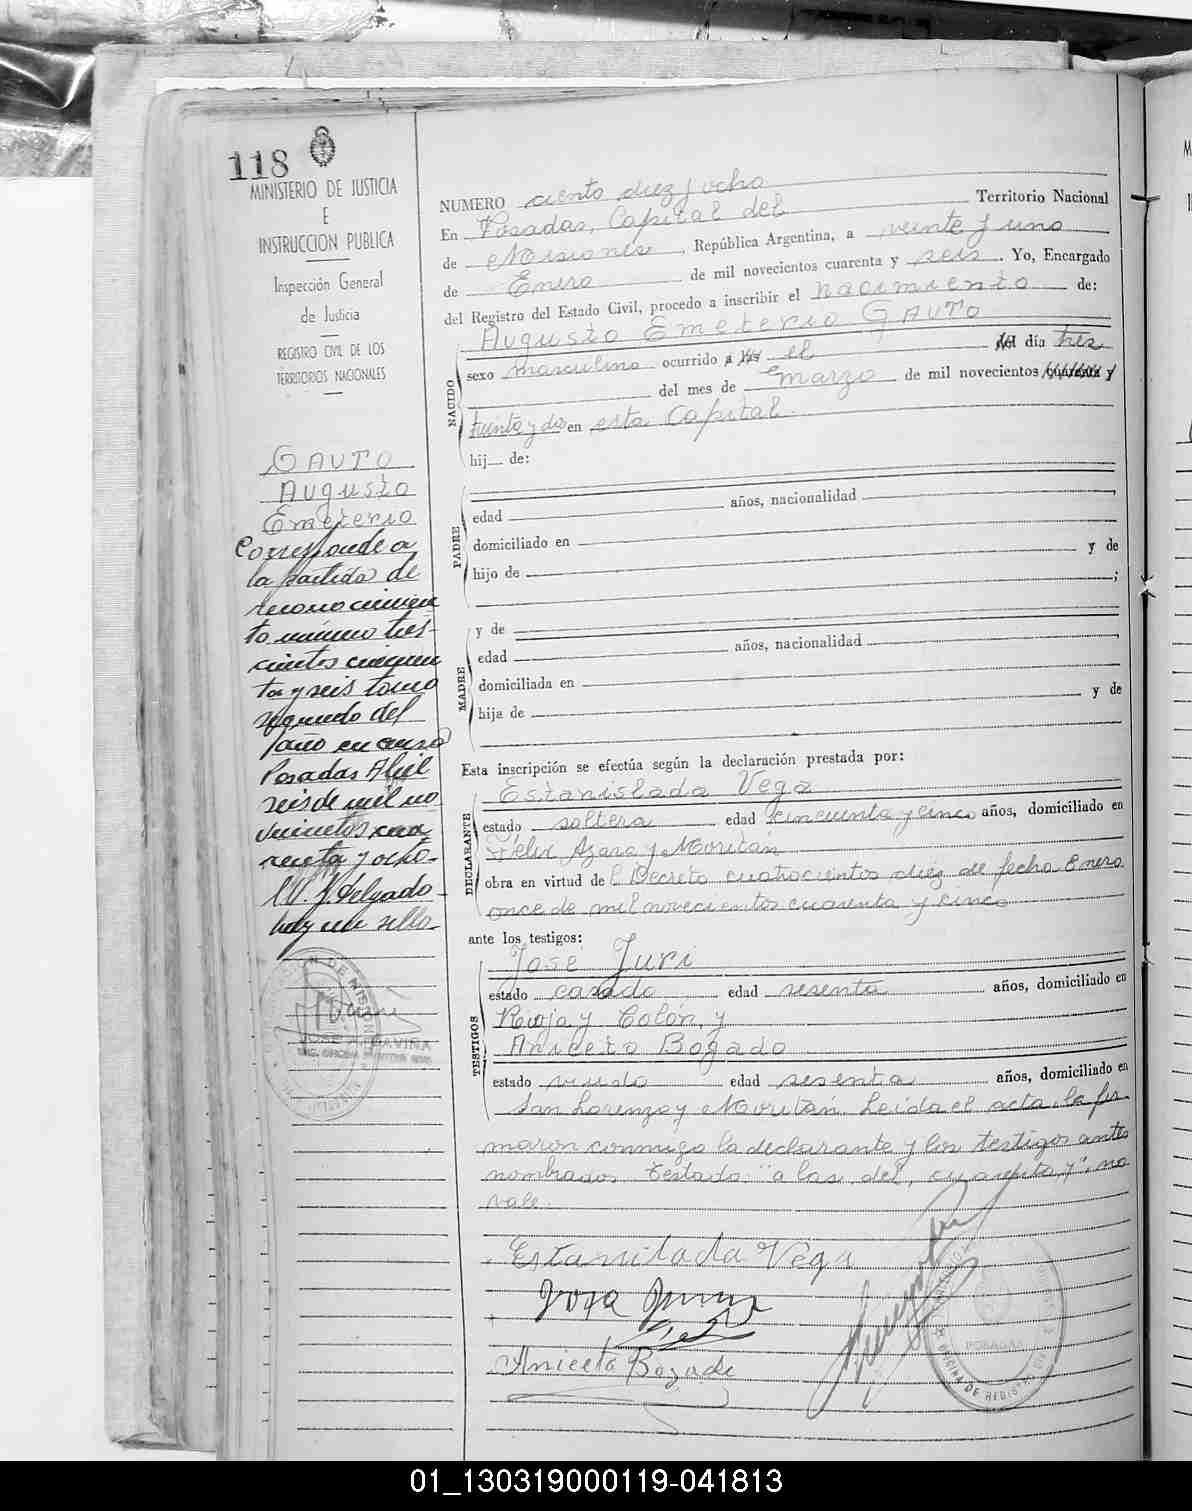 118
MINISTERIO DE JUSTICIA
E
INSTRUCCION PUBLICA
Inspección General
de Justicia
REGISTRO CIVIL DE LOS
TERRITORIOS NACIONALES
GAUTO
Augusto
Emeterio
Corresponde a
la partida de
reconocimien
to número tres-
cientos cincuen
ta y seis tomo
segundo del
año en curso
Posadas Abril
seis de mil no
vecientos cua
renta y ocho-
J. Delgado
hay un sello-
NUMERO ciento diez y ocho
En Posadas, Capital del Territorio Nacional
de Misiones, República Argentina, a veinte y uno
de Enero de mil novecientos cuarenta y seis. Yo, Encargado
del Registro del Estado Civil, procedo a inscribir el nacimiento de:
NACIDO
Augusto Emeterio GAUTO
sexo masculino ocurrido a las el del día tres
del mes de marzo de mil novecientos cuarenta y
treinta y dos en esta Capital
hij de:
PADRE
edad años, nacionalidad
domiciliado en
hijo de y de
;
MADRE
y de
edad años, nacionalidad
domiciliada en
hija de y de
Esta inscripción se efectúa según la declaración prestada por:
DECLARANTE
Estanislada Vega
estado soltera edad cincuenta y cinco años, domiciliado en
Félix Azara y Moritán
obra en virtud del Decreto cuatrocientos diez de fecha Enero
once de mil novecientos cuarenta y cinco
ante los testigos:
TESTIGOS
José Juri
estado casado edad sesenta años, domiciliado en
Rioja y Colón, y
Aniceto Bogado
estado viudo edad sesenta años, domiciliado en
San Lorenzo y Moritán. Leída el acta, la fir
maron conmigo la declarante y los testigos antes
nombrados. Testado: "a las, del, cuarenta y", no
vale.
Estanilada Vega
Aniceto Bogado
POSADAS
OFICINA DE REGISTRO
01_130319000119-041813